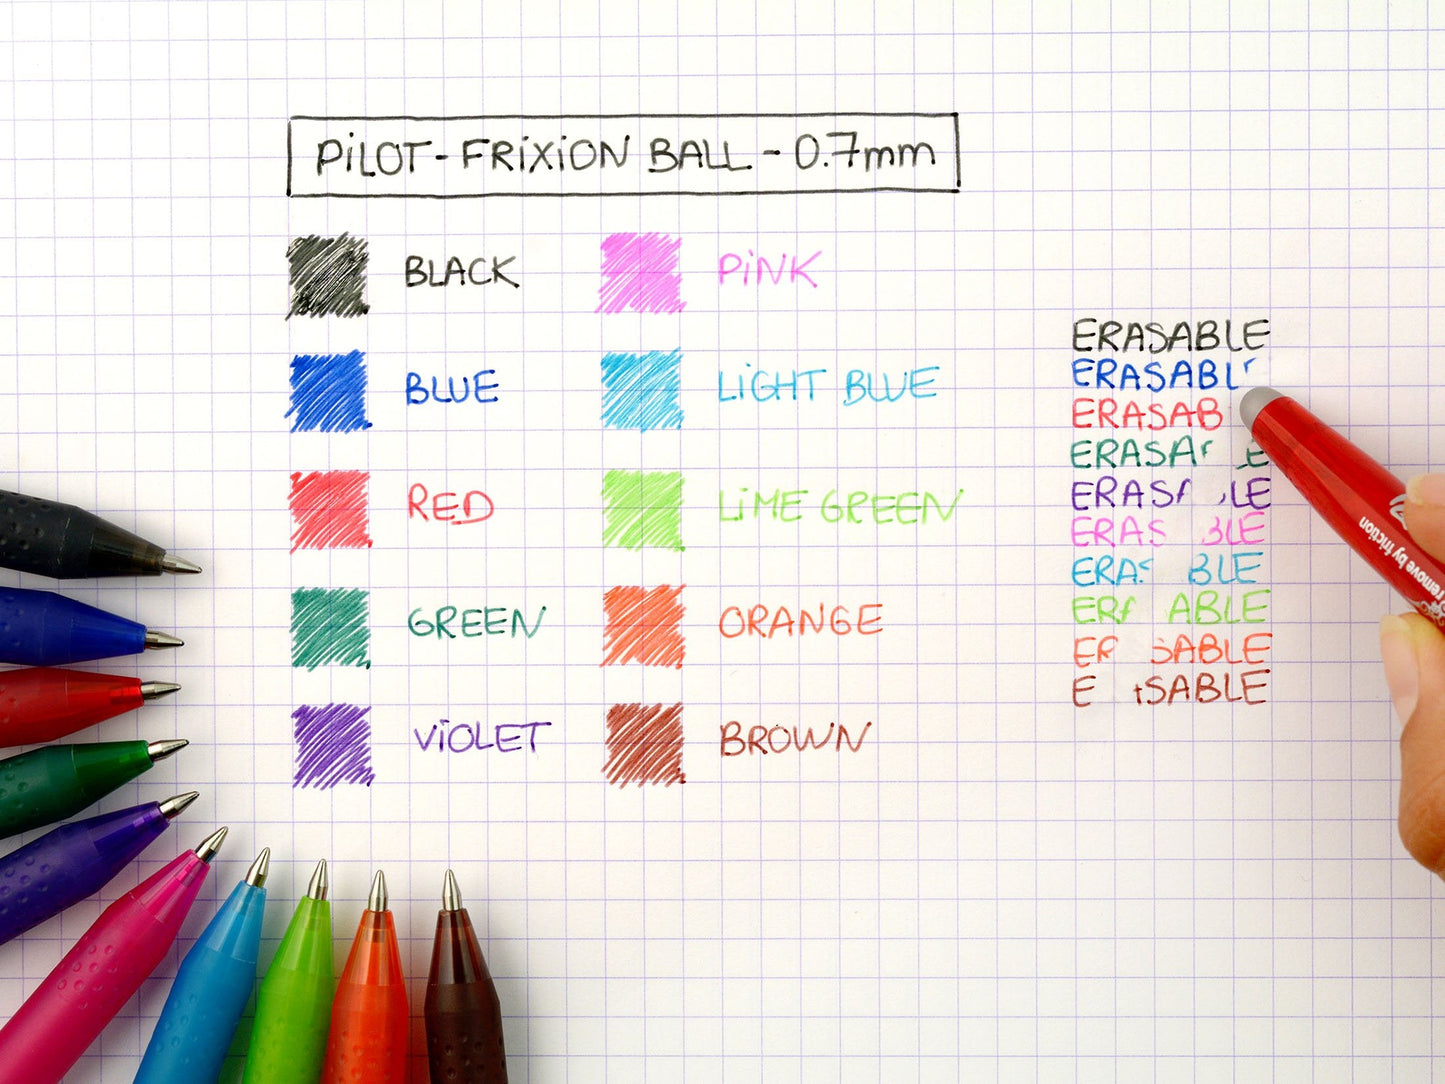 PiLOT - FRiXiON BALL - 0.7mm
BLACK
PiNK
BLUE
LiGHT BLUE
RED
LiME GREEN
GREEN
ORANGE
ViOLET
BROWN
ERASABLE
ERASABL
ERASAB
ERASA E
ERAS LE
ERAS BLE
ERAS BLE
ER ABLE
E SABLE
E SABLE
remove by friction